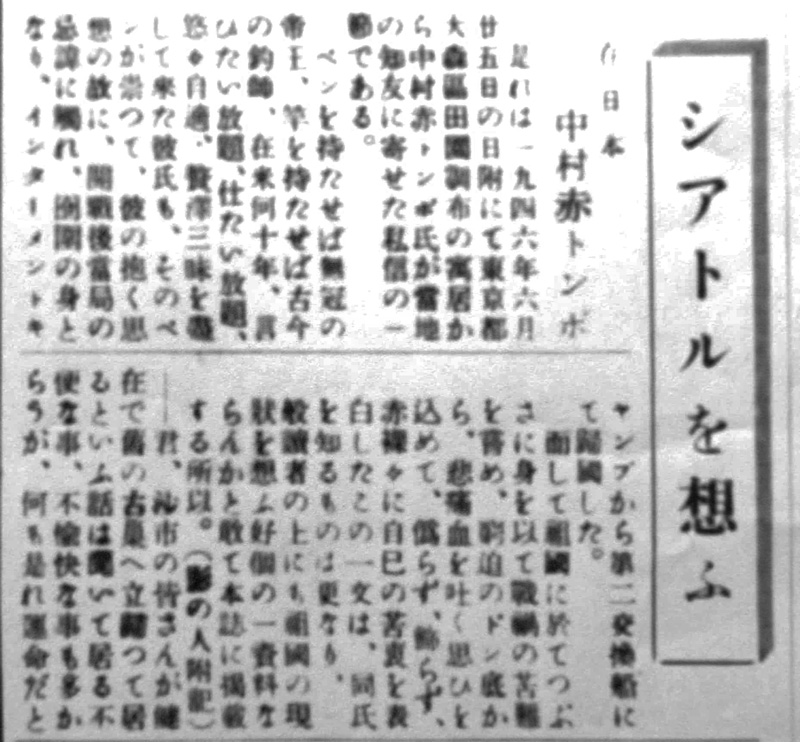 シアトルを想ふ
在日本
中村赤トンボ
是れは一九四六年六月
廿五日の日附にて東京都
大森區田園調布の寓居か
ら中村赤トンボ氏が當地
の知友に寄せた私信の一
節である。
ペンを持たせば無冠の
帝王、竿を持たせば古今
の釣師、在来何十年、言
ひたい放題、仕たい放題、
悠々自適、贅澤三昧を盡
して来た彼氏も、そのペ
ンが祟つて、彼の抱く思
想の故に、開戰後當局の
忌諱に觸れ、囹圄の身と
なり、インターメントキ
ヤンプから第二交換船に
て歸國した。
面して祖國に於てつぶ
さに身を以て戰禍の苦難
を嘗め、窮迫のドン底か
ら、悲痛血を吐く思ひを
込めて、僞らず、飾らず、
赤裸々に自己の苦衷を表
白したこの一文は、同氏
を知るものは更なり、一
般讀者の上にも祖國の現
狀を想ふ好個の一資料な
らんかと敢て本誌に掲載
する所以。（影の人附記）
――君、沙市の皆さんが健
在で舊の古巣へ立歸つて居
るといふ話は聞いて居る不
便な事、不愉快な事も多か
らうが、何も是れ運命だと